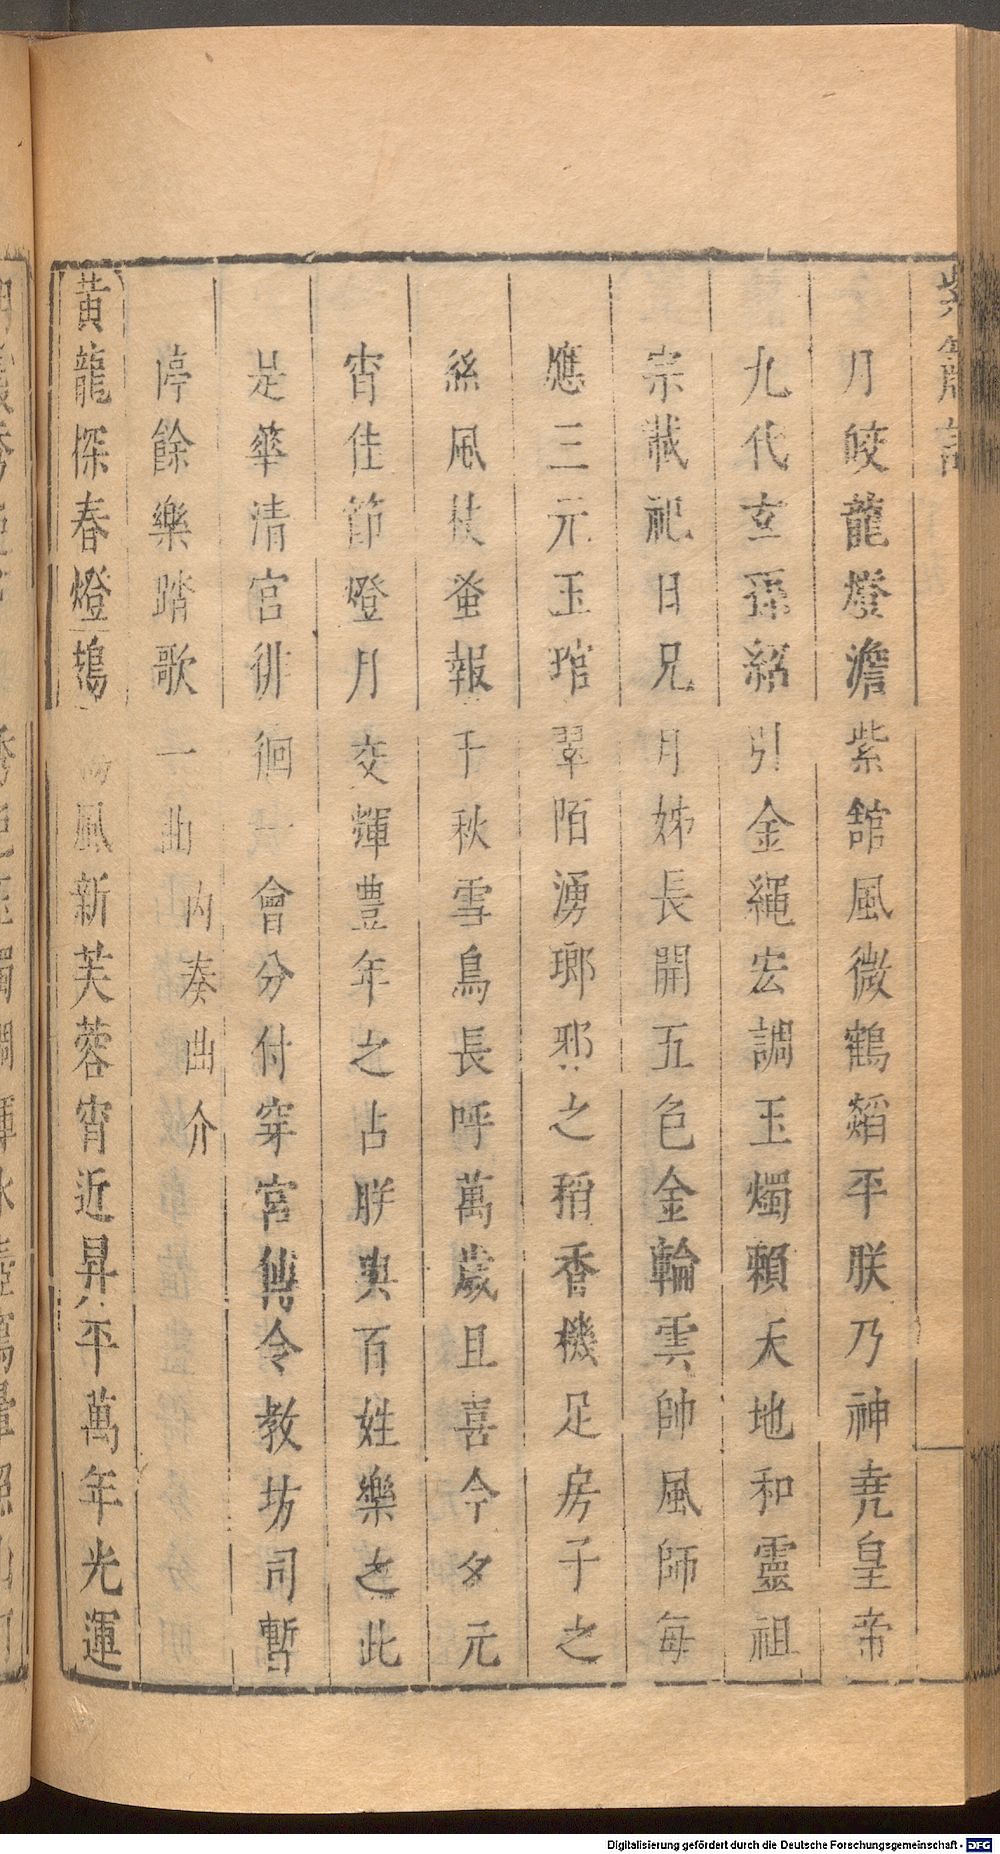 紫簫記
月皎龍燈澹紫館風微鶴燄平朕乃神堯皇帝
九代玄孫紹引金繩宏調玉燭賴天地和靈祖
宗藏祀日兄月姊長開五色金輪雲帥風師每
應三元玉琯翠陌湧瑯邪之稻香機足房子之
絲風杖蚤報千秋雪鳥長呼萬歲且喜今夕元
宵佳節燈月交輝豊年之占朕與百姓樂之此
是華清宮徘徊一會分付穿宮傳令教坊司暫
停餘樂踏歌一曲
內奏曲介
黃龍探春燈
風新芙蓉宵近昇平萬年光運
Digitalisierung gefördert durch die Deutsche Forschungsgemeinschaft - DFG